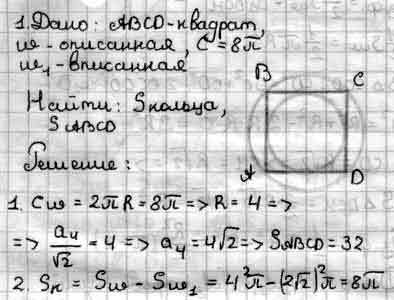 1. Дано: ABCD - квадрат,
w - описанная, C = 8π
w₁ - вписанная
Найти: Sкольца,
SABCD
Решение:
B C
A D
1. Cw = 2πR = 8π => R = 4 =>
=> a₄/√2 = 4 => a₄ = 4√2 => SABCD = 32
2. Sк = Sw - Sw₁ = 4²π - (2√2)²π = 8π